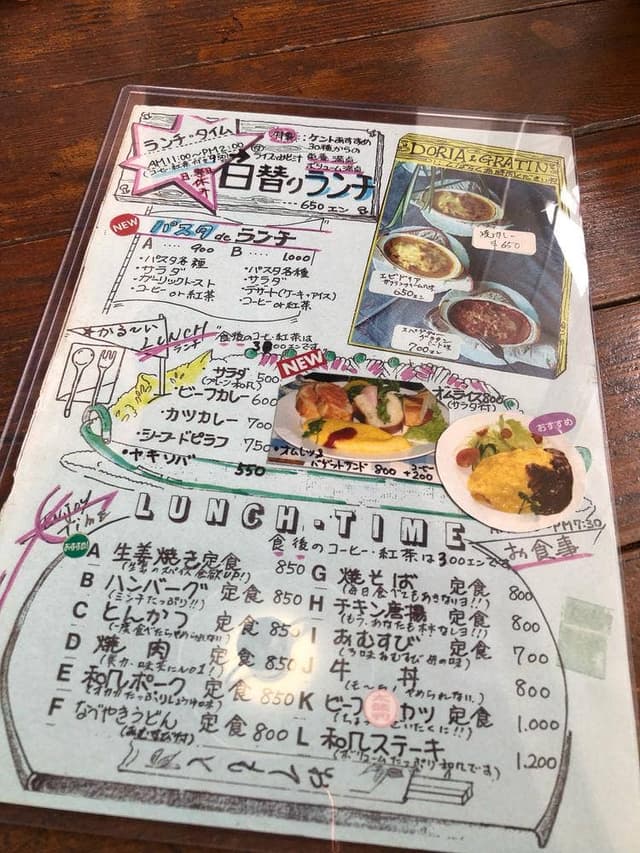 ランチ・タイム
AM11:00〜PM2:00
特集:ケントおすすめ
30種からの
ボリューム満点
日替りランチ
650エン
NEW
パスタdeランチ
A ‥‥ 900
・パスタ各種
・サラダ
・ガーリックトースト
・コーヒーor紅茶
B ‥‥ 1,000
・パスタ各種
・サラダ
・デザート(ケーキorアイス)
・コーヒーor紅茶
DORIA & GRATIN
焼カレー
¥650
エビドリア
650エン
スパゲティ
グラタン
700エン
かるーい LUNCH
ランチ
食後のコーヒー・紅茶は
300エンです
サラダ 500
ビーフカレー 600
カツカレー 700
・シーフードピラフ 750
・ヤキソバ 550
NEW
オムライス 800
(サラダ付)
・オムレツ&
バゲットサンド 800
コーヒー
+200
おすすめ
Enjoy
Time
LUNCH・TIME
食後のコーヒー・紅茶は300エンです
PM7:30
お食事
おすすめ!
A 生姜焼き定食 850
B ハンバーグ 定食 850
(ミンチたっぷり!!)
C とんかつ 定食 850
D 焼肉 定食 850
E 和風ポーク 定食 850
F なべやきうどん 定食 800
(おむすび付)
G 焼そば 定食 800
(毎日食べてもあきないヨ!!)
H チキン唐揚 定食 800
I おむすび 定食 700
J 牛丼 800
K ビーフカツ 定食 1,000
L 和風ステーキ 1,200
(ボリュームたっぷり和風です)